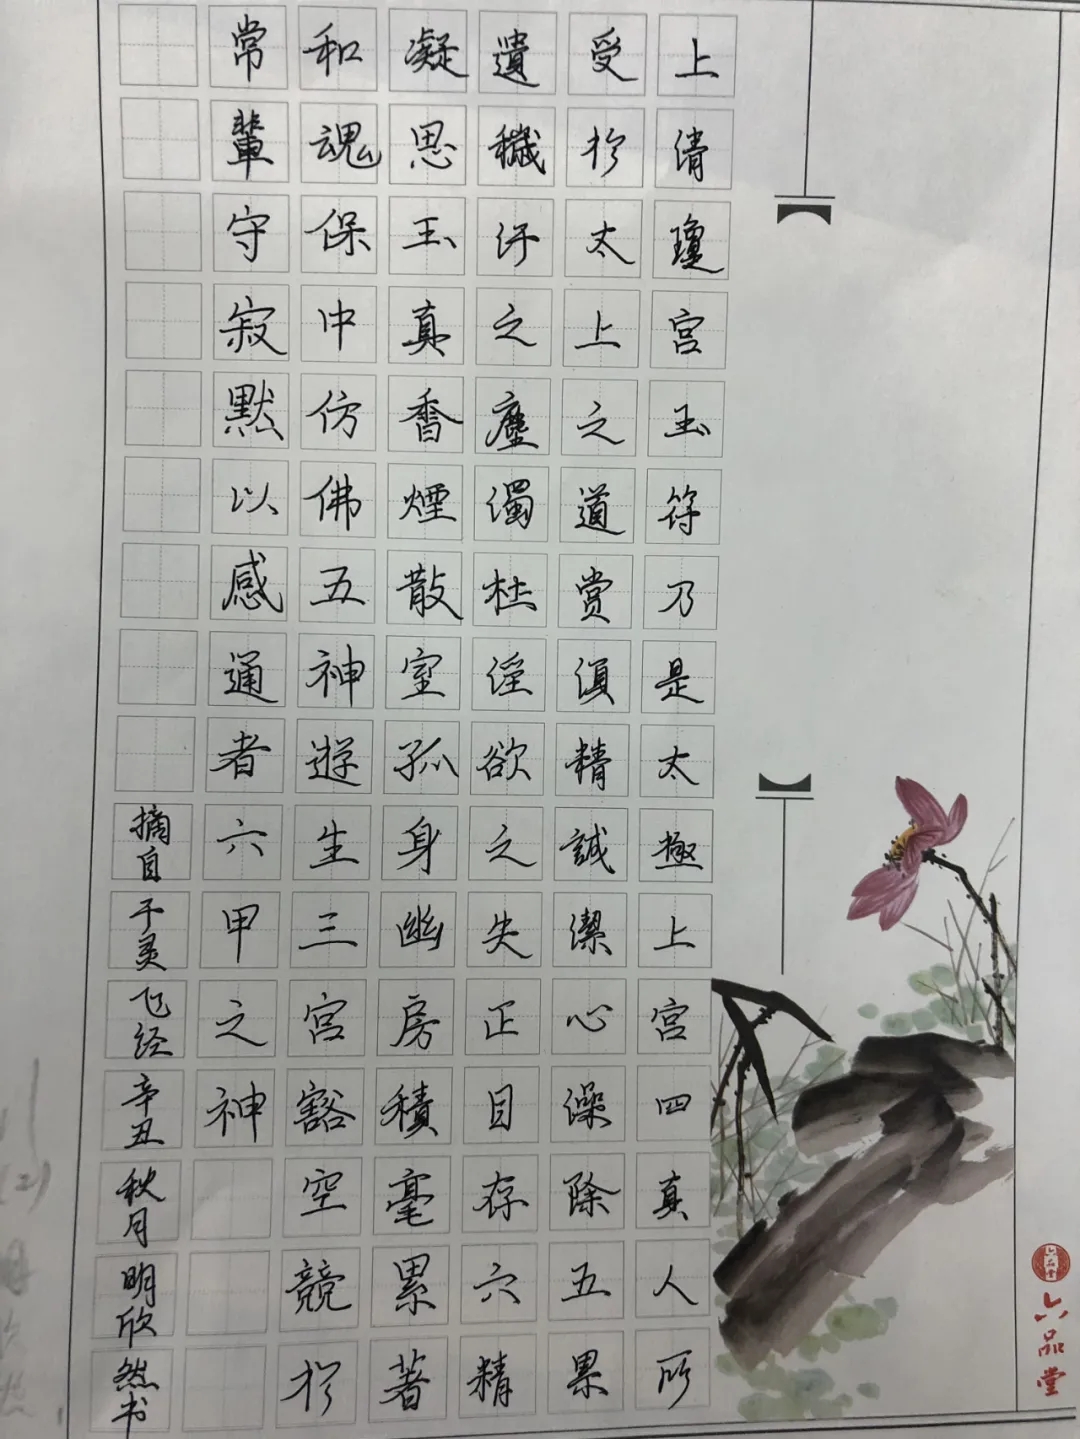 上清瓊宮玉符乃是太極上宮四真人所
受於太上之道當須精誠潔心澡除五累
遺穢汙之塵濁杜淫欲之失正目存六精
凝思玉真香煙散室孤身幽房積毫累著
和魂保中仿佛五神遊生三宮豁空競於
常輩守寂默以感通者六甲之神
摘自于灵飞经辛丑秋月明欣然书
六品堂
六品堂